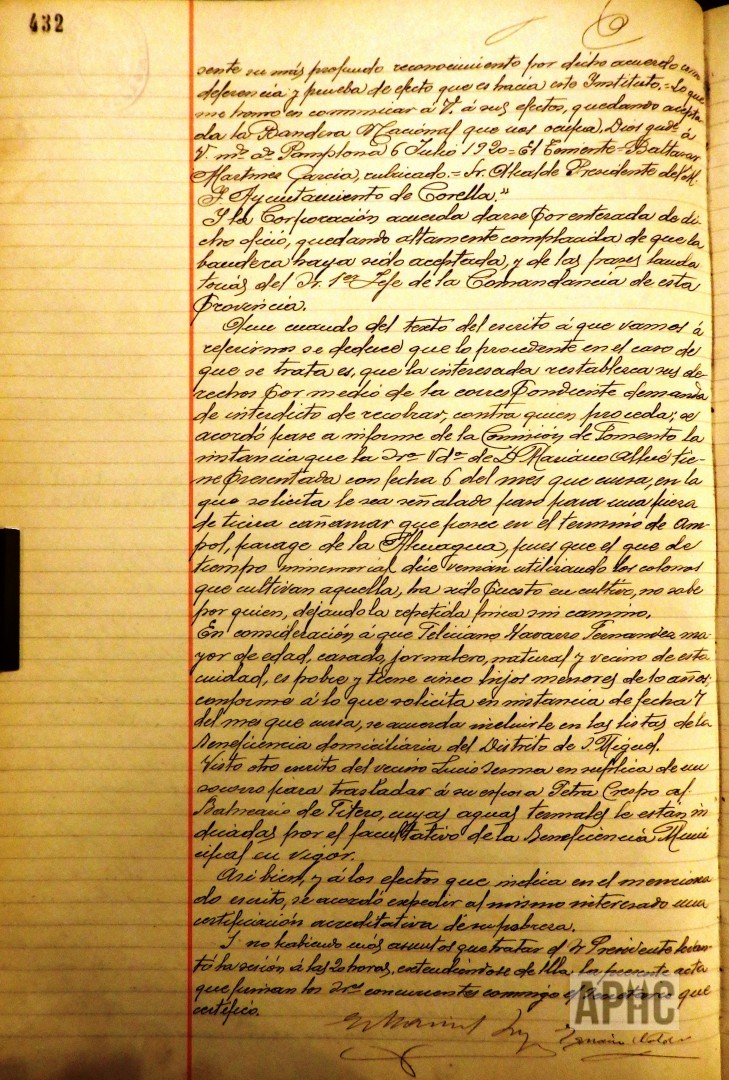 432
sente su más profundo reconocimiento por dicho acuerdo como
deferencia y prueba de efecto que es hacia este Instituto. = Lo que
me honro en comunicar á V. á sus efectos, quedando acepta-
da la Bandera Nacional que nos ocupa. Dios gude. á
V. ms. as. Pamplona 6 Julio 1920 = El Comente = Baltasar
Martinez Garcia, rubricado. = Sr. Alcalde Presidente del M.
I. Ayuntamiento de Corella."
Y la Corporación acuerda darse por enterada de di-
cho oficio, quedando altamente complacida de que la
bandera haya sido aceptada, y de las frases lauda-
torias del Sr. 1er Jefe de la Comandancia de esta
Provincia.
Que cuando del texto del escrito á que vamos á
referirnos se deduce que lo procedente en el caso de
que se trata es, que la interesada restablezca sus de-
rechos por medio de la correspondiente demanda
de interdicto de recobrar, contra quien proceda; se
acordó pase a informe de la Comisión de Fomento la
instancia que la Sra. Vda. de D. Mariano Alfué tie-
ne presentada con fecha 6 del mes que cursa, en la
que solicita le sea señalado paso para una pieza
de tierra cañamar que posee en el termino de Am-
pol, parage de la Almagua, pues que el que de
tiempo inmemorial dice venían utilizando los colonos
que cultivan aquella, ha sido puesto en cultivo, no sabe
por quien, dejando la repetida finca sin camino.
En consideración á que Feliciano Navarro Fernandez ma-
yor de edad, casado, jornalero, natural y vecino de esta
ciudad, es pobre y tiene cinco hijos menores de 10 años,
conforme á lo que solicita en instancia de fecha 7
del mes que cursa, se acuerda incluirle en las listas de la
Beneficencia domiciliaria del Distrito de S. Miguel.
Visto otro escrito del vecino Lucio Sesma en súplica de un
socorro para trasladar á su esposa Petra Crespo al
Balneario de Fitero, cuyas aguas termales le están in-
dicadas por el facultativo de la Beneficencia Muni-
cipal en vigor.
Asi bien, y á los efectos que indica en el menciona-
do escrito, se acordó expedir al mismo interesado una
certificación acreditativa de su pobreza.
Y no habiendo más asuntos que tratar el Sr. Presidente levan-
tó la sesión á las 20 horas, extendiéndose de ella la presente acta
que firman los Sres. concurrentes conmigo el Secretario que
certifico.
APHC